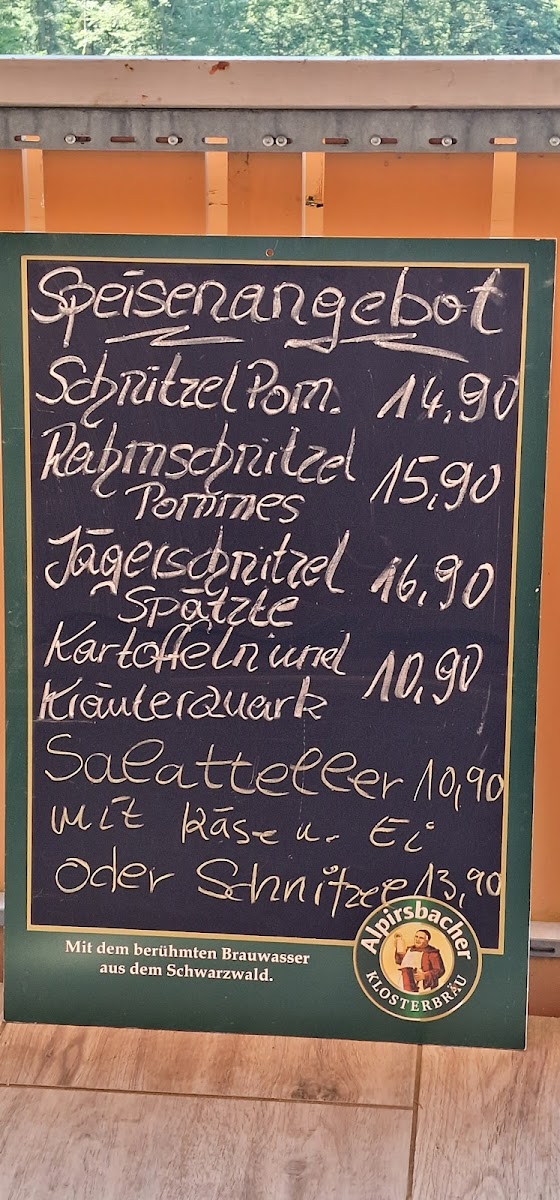 Speisenangebot
Schnitzel Pom. 14,90
Rahmschnitzel
Pommes 15,90
Jägerschnitzel 16,90
Spätzle
Kartoffeln und
Kräuterquark 10,90
Salatteller 10,90
mit Käse u. Ei
oder Schnitzel 13,90
Mit dem berühmten Brauwasser
aus dem Schwarzwald.
Alpirsbacher
KLOSTERBRÄU